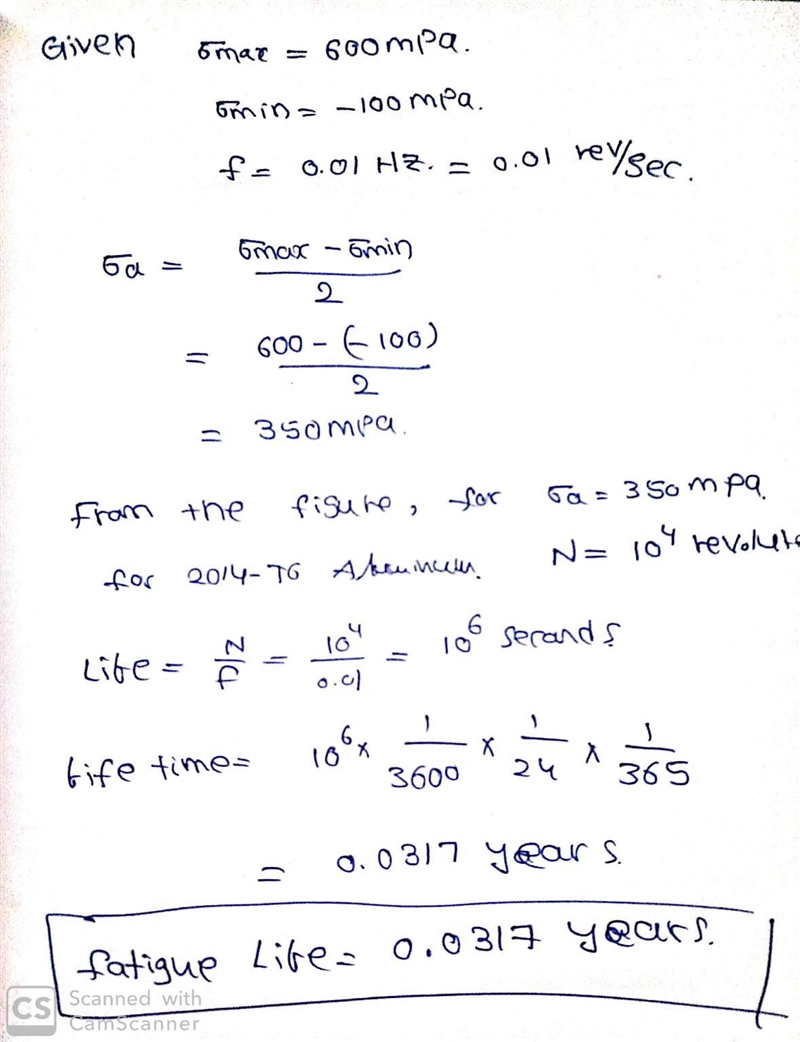 Given σmax = 600mpa.
σmin = -100 mpa.
f = 0.01 HZ. = 0.01 rev/sec.
σa = σmax - σmin
2
= 600 - (-100)
2
= 350mpa.
From the figure, for σa = 350mpa.
for 2014-T6 N = 10⁴
Life = N/f = 10⁴/0.01 = 10⁶ seconds
Life time = 10⁶ x 1/3600 x 1/24 x 1/365
= 0.0317 years.
fatigue Life = 0.0317 years.
CS Scanned with
CamScanner